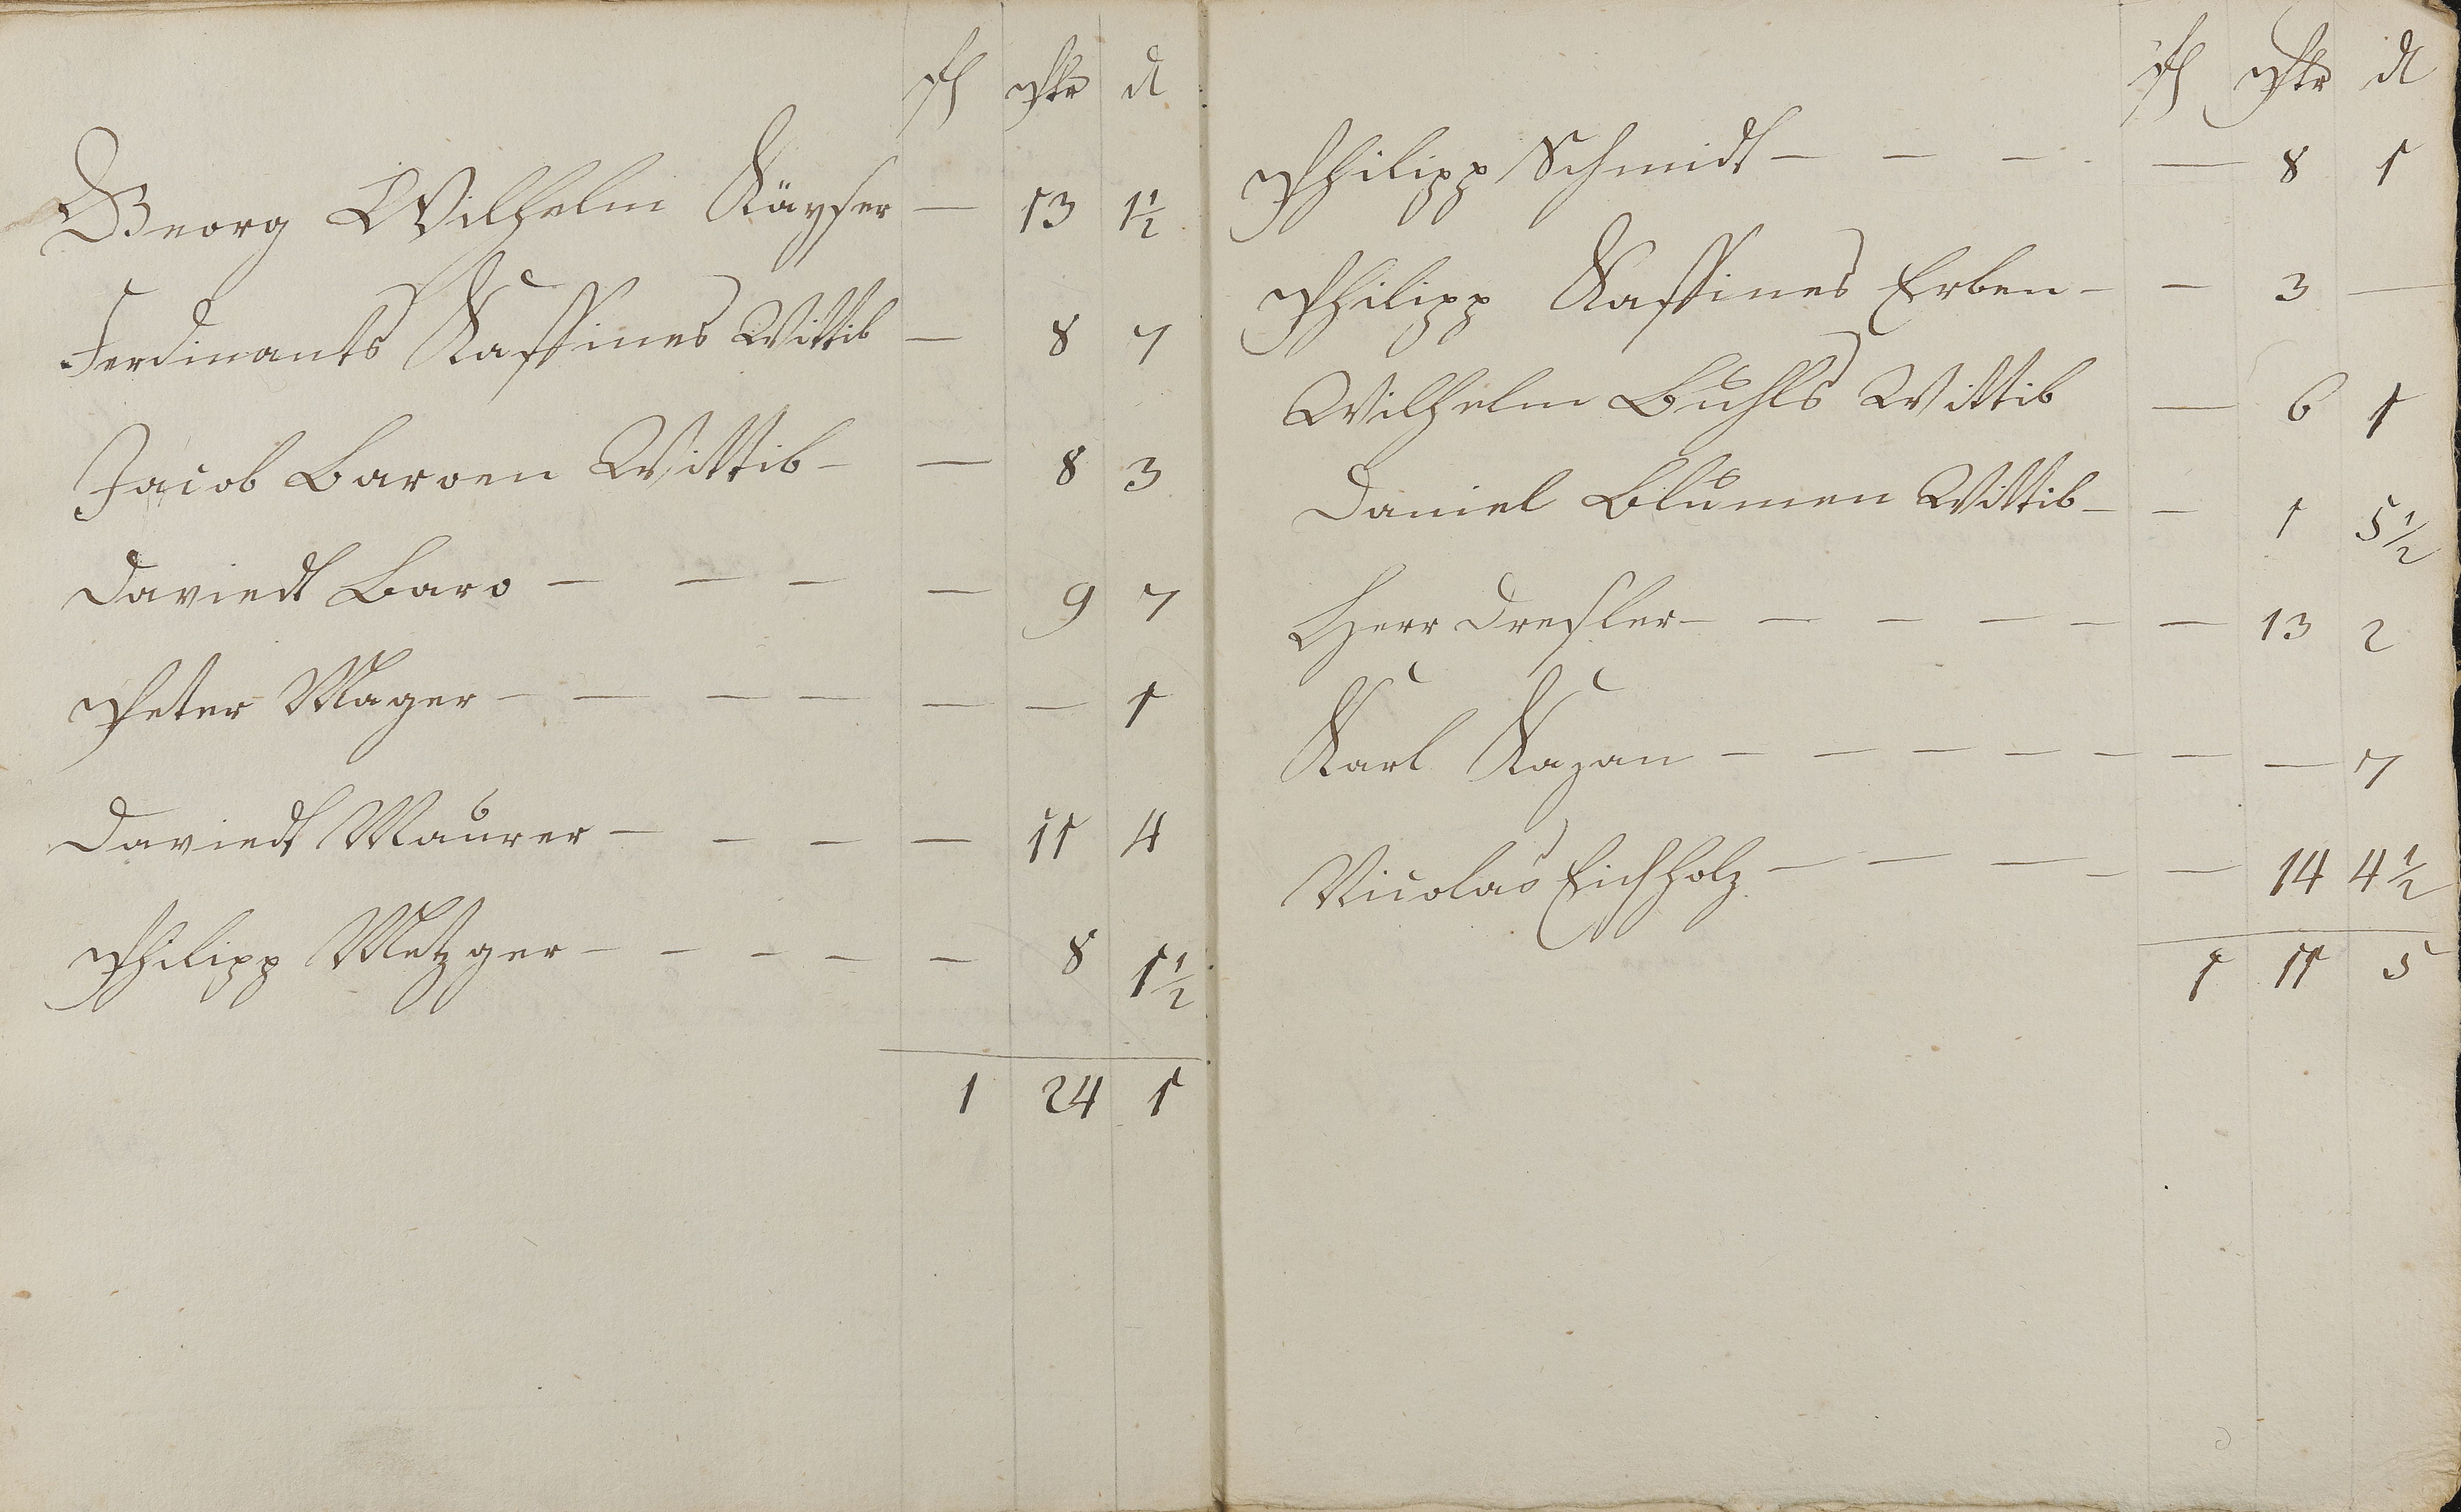 fl Str d
Georg Wilhelm Käyser — 13 1 1/2
Ferdinants Kassines Wittib — 8 7
Jacob Baroen Wittib — — 8 3
Daviedt Baro — — — — 9 7
Peter Mager — — — — — — 1
Daviedt Maurer — — — — 11 4
Philipp Metzger — — — — — 8 1 1/2
1 24 1
fl Str d
Philipp Schmidt — — — — 8 1
Philipp Kassines Erben — — 3 —
Wilhelm Buhls Wittib — 6 1
Daniel Blumen Wittib — — 1 5 1/2
Herr Dresler — — — — — — 13 2
Karl Kazan — — — — — — — 7
Nicolas Eichholz — — — — — 14 4 1/2
1 11 5